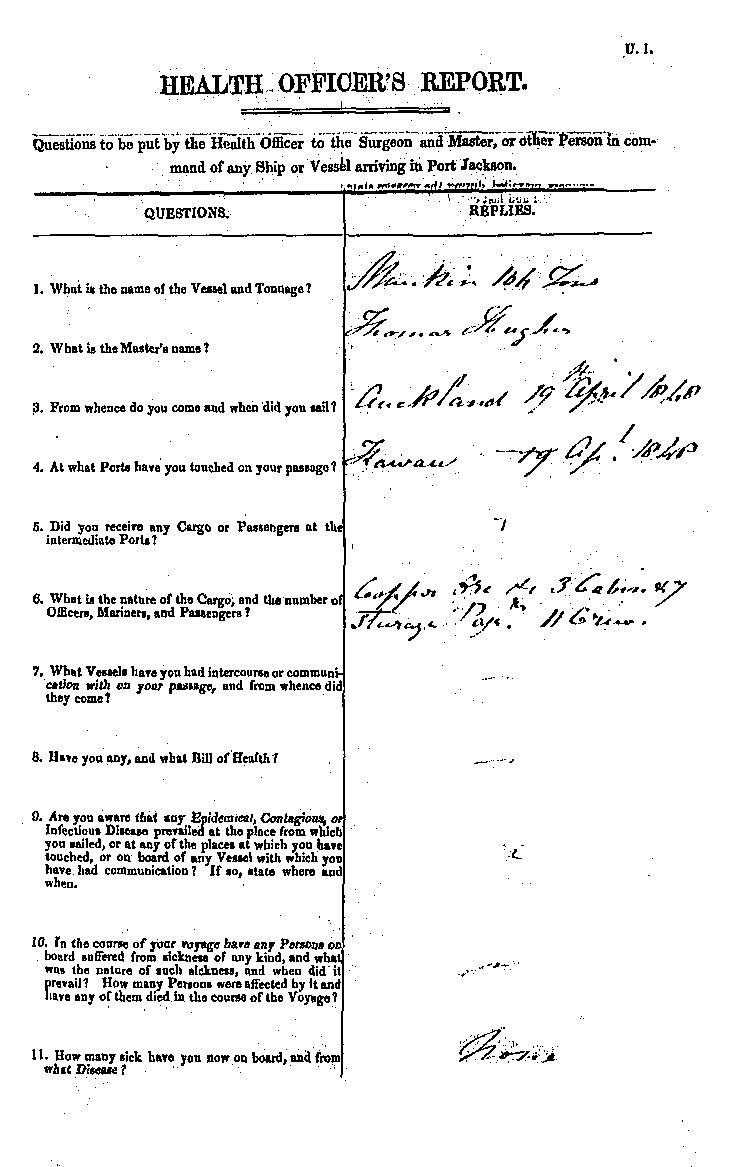 U. 1.
HEALTH OFFICER'S REPORT.
Questions to be put by the Health Officer to the Surgeon and Master, or other Person in com-
mand of any Ship or Vessel arriving in Port Jackson.
QUESTIONS.
REPLIES.
1. What is the name of the Vessel and Tonnage?
104 Tons
2. What is the Master's name?
Thomas Hughes
3. From whence do you come and when did you sail?
Auckland 19th April 1848
4. At what Ports have you touched on your passage?
Kawau 19 Apl. 1848
5. Did you receive any Cargo or Passengers at the
intermediate Ports?
6. What is the nature of the Cargo, and the number of
Officers, Mariners, and Passengers?
Copper Ore &c 3 Cabin & 7
Sturage 11 Crew.
7. What Vessels have you had intercourse or communi-
cation with on your passage, and from whence did
they come?
8. Have you any, and what Bill of Health?
9. Are you aware that any Epidemical, Contagious, or
Infectious Disease prevailed at the place from which
you sailed, or at any of the places at which you have
touched, or on board of any Vessel with which you
have had communication? If so, state where and
when.
10. In the course of your voyage have any Persons on
board suffered from sickness of any kind, and what
was the nature of such sickness, and when did it
prevail? How many Persons were affected by it and
have any of them died in the course of the Voyage?
11. How many sick have you now on board, and from
what Disease?
None